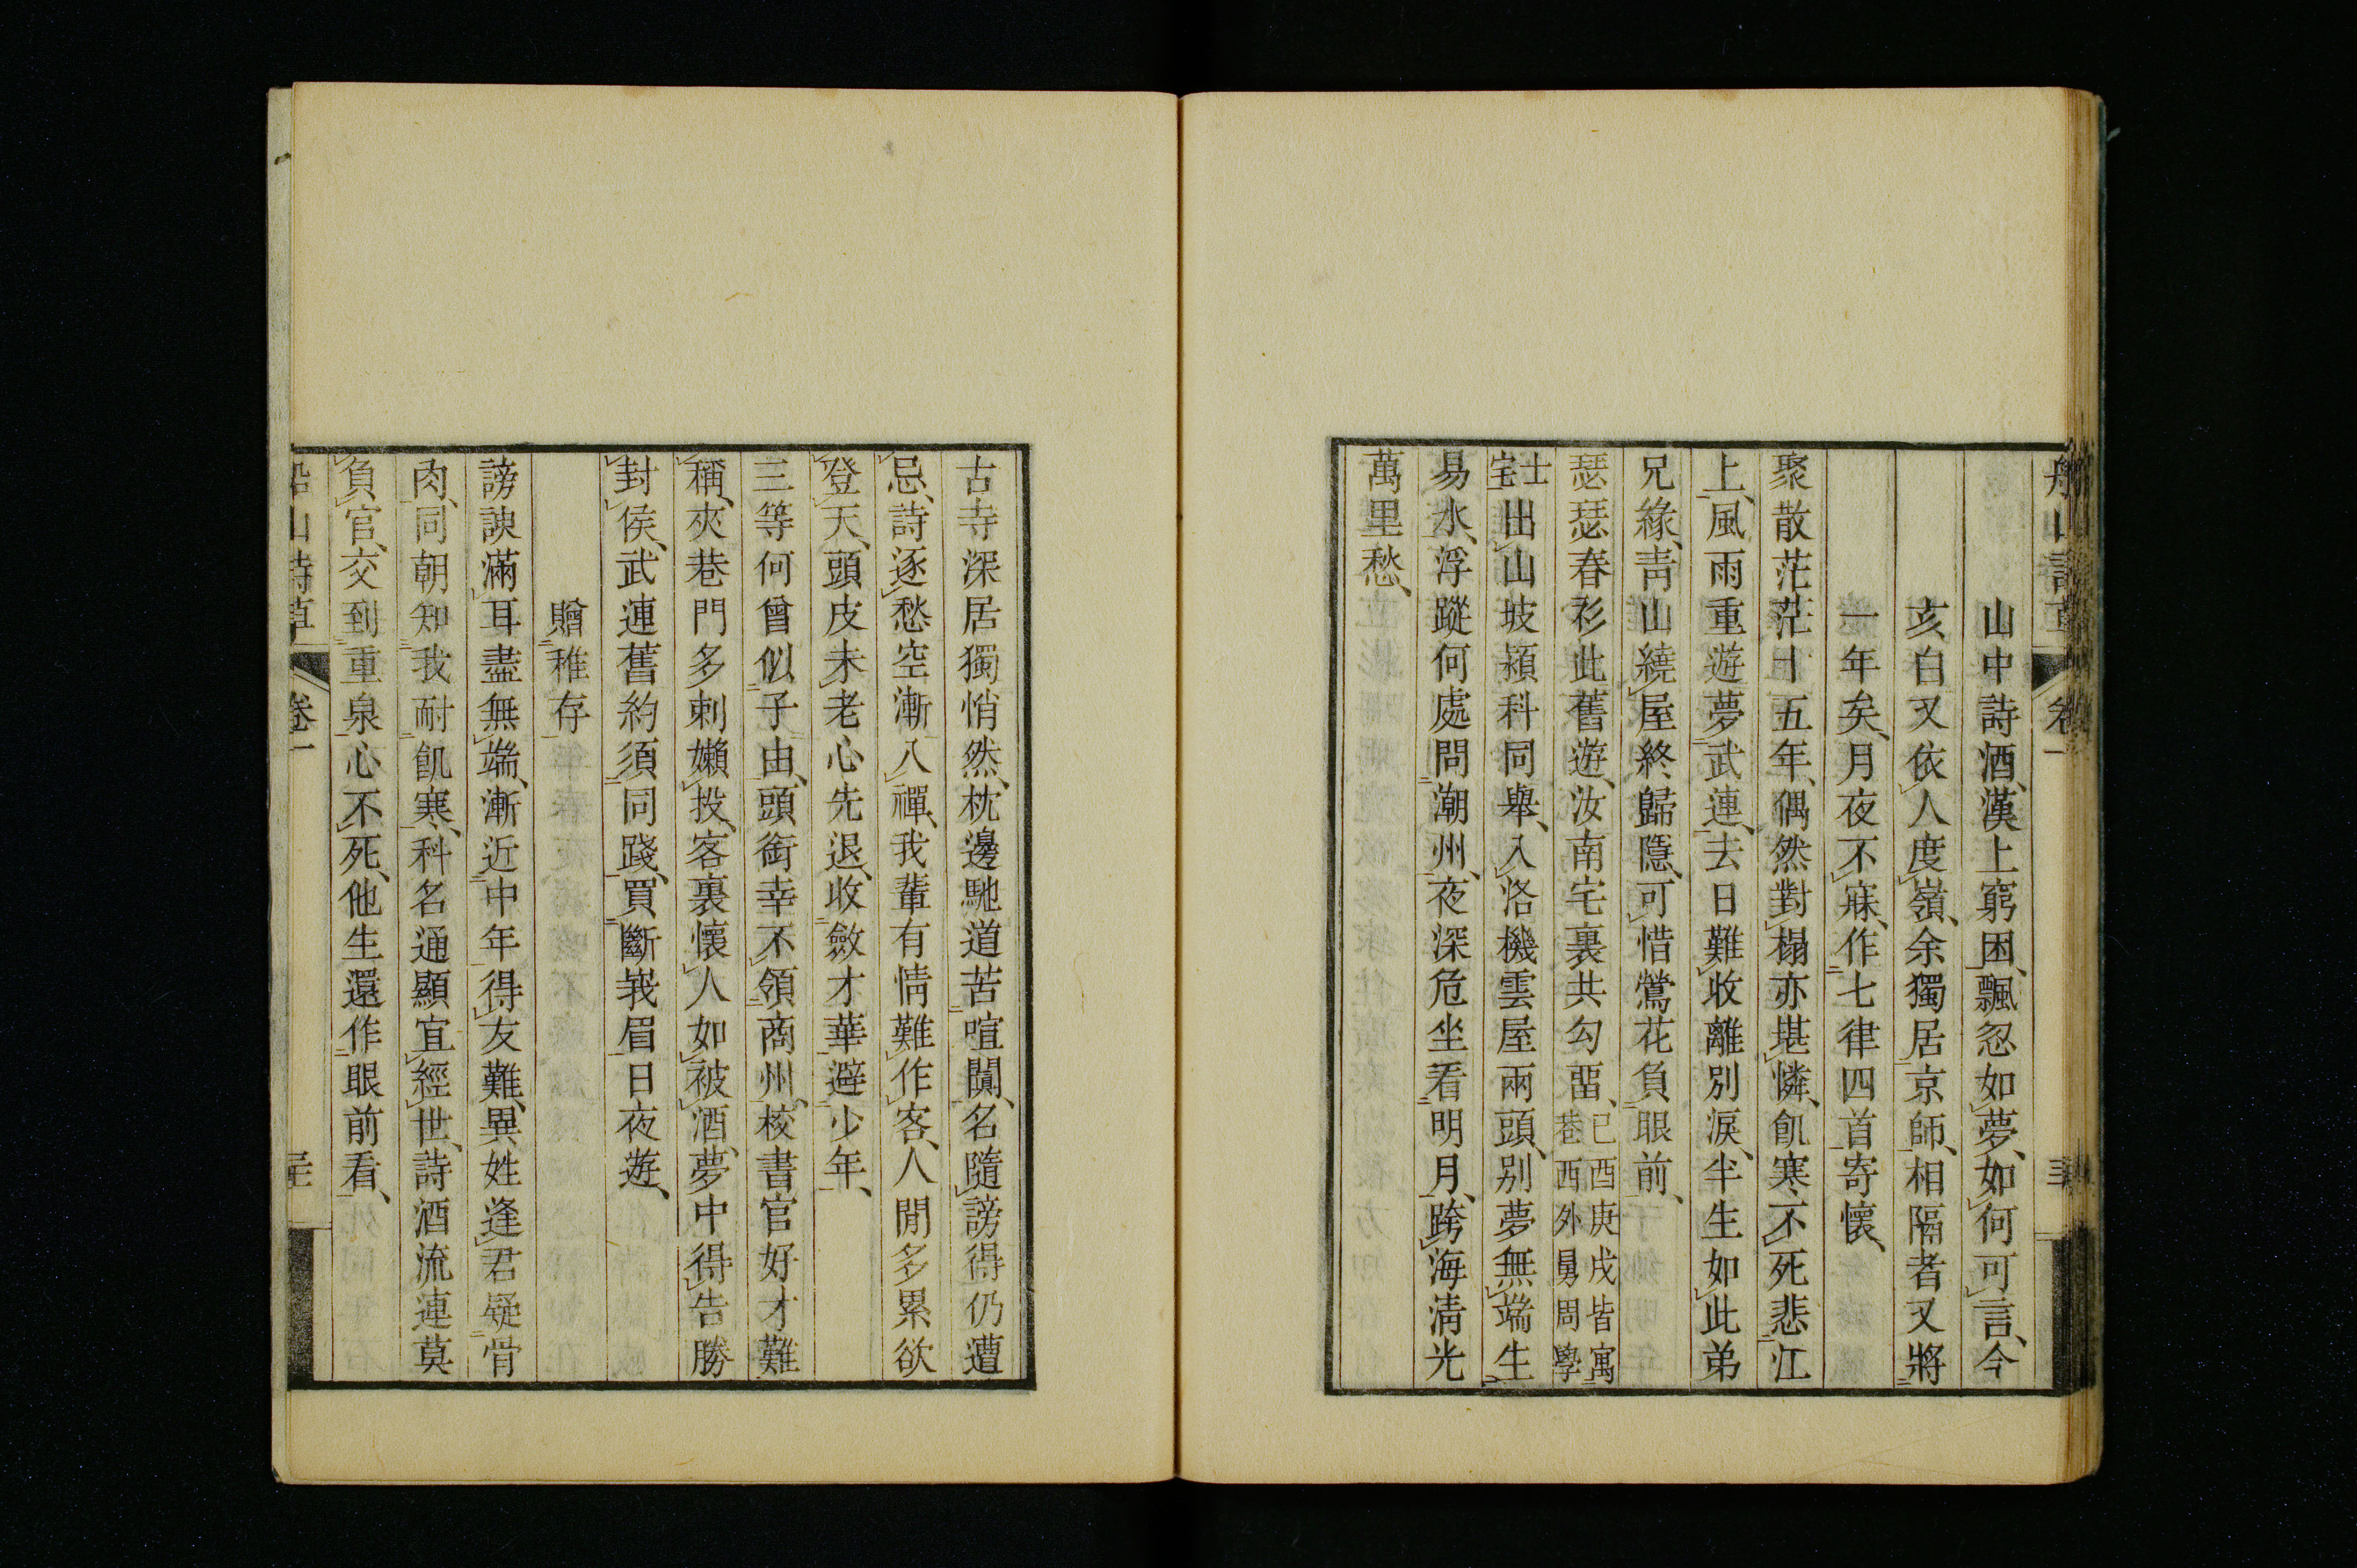 船山詩草 卷一
山中詩酒、漢上窮困、飄忽如夢、如何可言、今
亥白又依人度嶺、余獨居京師、相隔者又將
一年矣、月夜不寐、作七律四首寄懷、
聚散茫茫十五年、偶然對榻亦堪憐、飢寒不死悲江
上、風雨重遊夢武連、去日難收離別淚、半生如此弟
兄緣、青山繞屋終歸隱、可惜鶯花負眼前、
瑟瑟春衫此舊遊、汝南宅裏共勾留、己酉庚戌皆寓
巷西外舅周學
士宅出山坡潁科同舉、入洛機雲屋兩頭、別夢無端生
易水、浮蹤何處問潮州、夜深危坐看明月、跨海清光
萬里愁、
古寺深居獨悄然、枕邊馳道苦喧闐、名隨謗得仍遭
忌、詩逐愁空漸入禪、我輩有情難作客、人間多累欲
登天、頭皮未老心先退、收斂才華避少年、
三等何曾似子由、頭銜幸不領商州、校書官好才難
稱、夾巷門多刺嬾投、客裏懷人如被酒、夢中得告勝
封侯、武連舊約須同踐、買斷峩眉日夜遊、
贈稚存
謗諛滿耳盡無端、漸近中年得友難、異姓逢君疑骨
肉、同朝知我耐飢寒、科名通顯宜經世、詩酒流連莫
負官、交到重泉心不死、他生還作眼前看、
船山詩草 卷一